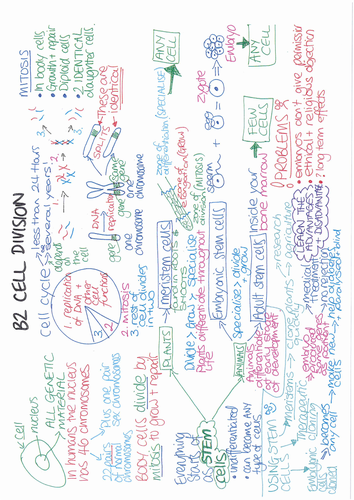 B2 CELL DIVISION
cell
nucleus
ALL GENETIC
MATERIAL
in humans the nucleus
has 40 chromosomes
22 pairs
of normal
chromosomes
plus one pair
of sex chromosomes
BODY CELLS divide by
mitosis to grow + repair
Cell cycle
less than 24 hours
several years!
depend on
the
cell
1. replication
of DNA +
other cell
function
2.
3.
2. mitosis
3. rest of
cell divides
in two
MITOSIS
• In body cells
• Growth + repair
• Diploid cells
• 2 IDENTICAL
daughter cells
DNA
replication
gene
gene
one
chromosome
one
chromosome
SPLITS
These are
identical
Everything
starts
as
STEM
CELLS
• undifferentiated
• can become ANY
type of cells
PLANTS
Meristem cells
found in roots +
zone of
differentiation (SPECIALISE)
zone of
elongation (GROW)
zone of
division (MITOSIS)
ANY
CELL
Divide > grow > specialise
Plants differentiate throughout
life
ANIMALS
Specialise > divide
+ grow
Animals
differentiate
at early stage
of development
Embryonic stem cells
egg
sperm
+
zygote
Embryo
ANY
CELL
Adult stem cells
inside your
bone marrow
FEW
CELLS
USING STEM
CELLS
meristems → clones of plants →
research
agriculture
Therapeutic
cloning
embryonic
cloned
medical
treatment
embryo
same genes
as
any type of
cell
move new
cells
help diabetes
paralysis + blind
LEARN THE
ADVANTAGES
+ DISADVANTAGES
PROBLEMS
• embryos can't give permission
• ethical + religious objection
• ? long term effects